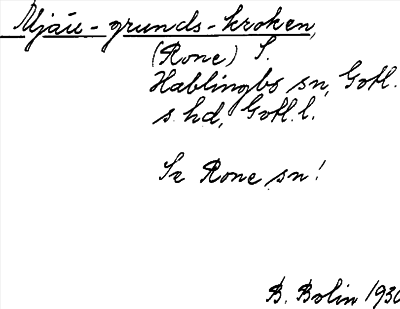 Mjäu-grunds-kroken,
(Rone) S.
Hablingbo sn, Gotl.
s. hd, Gotl. l.
Se Rone sn!
B. Bolin 1930